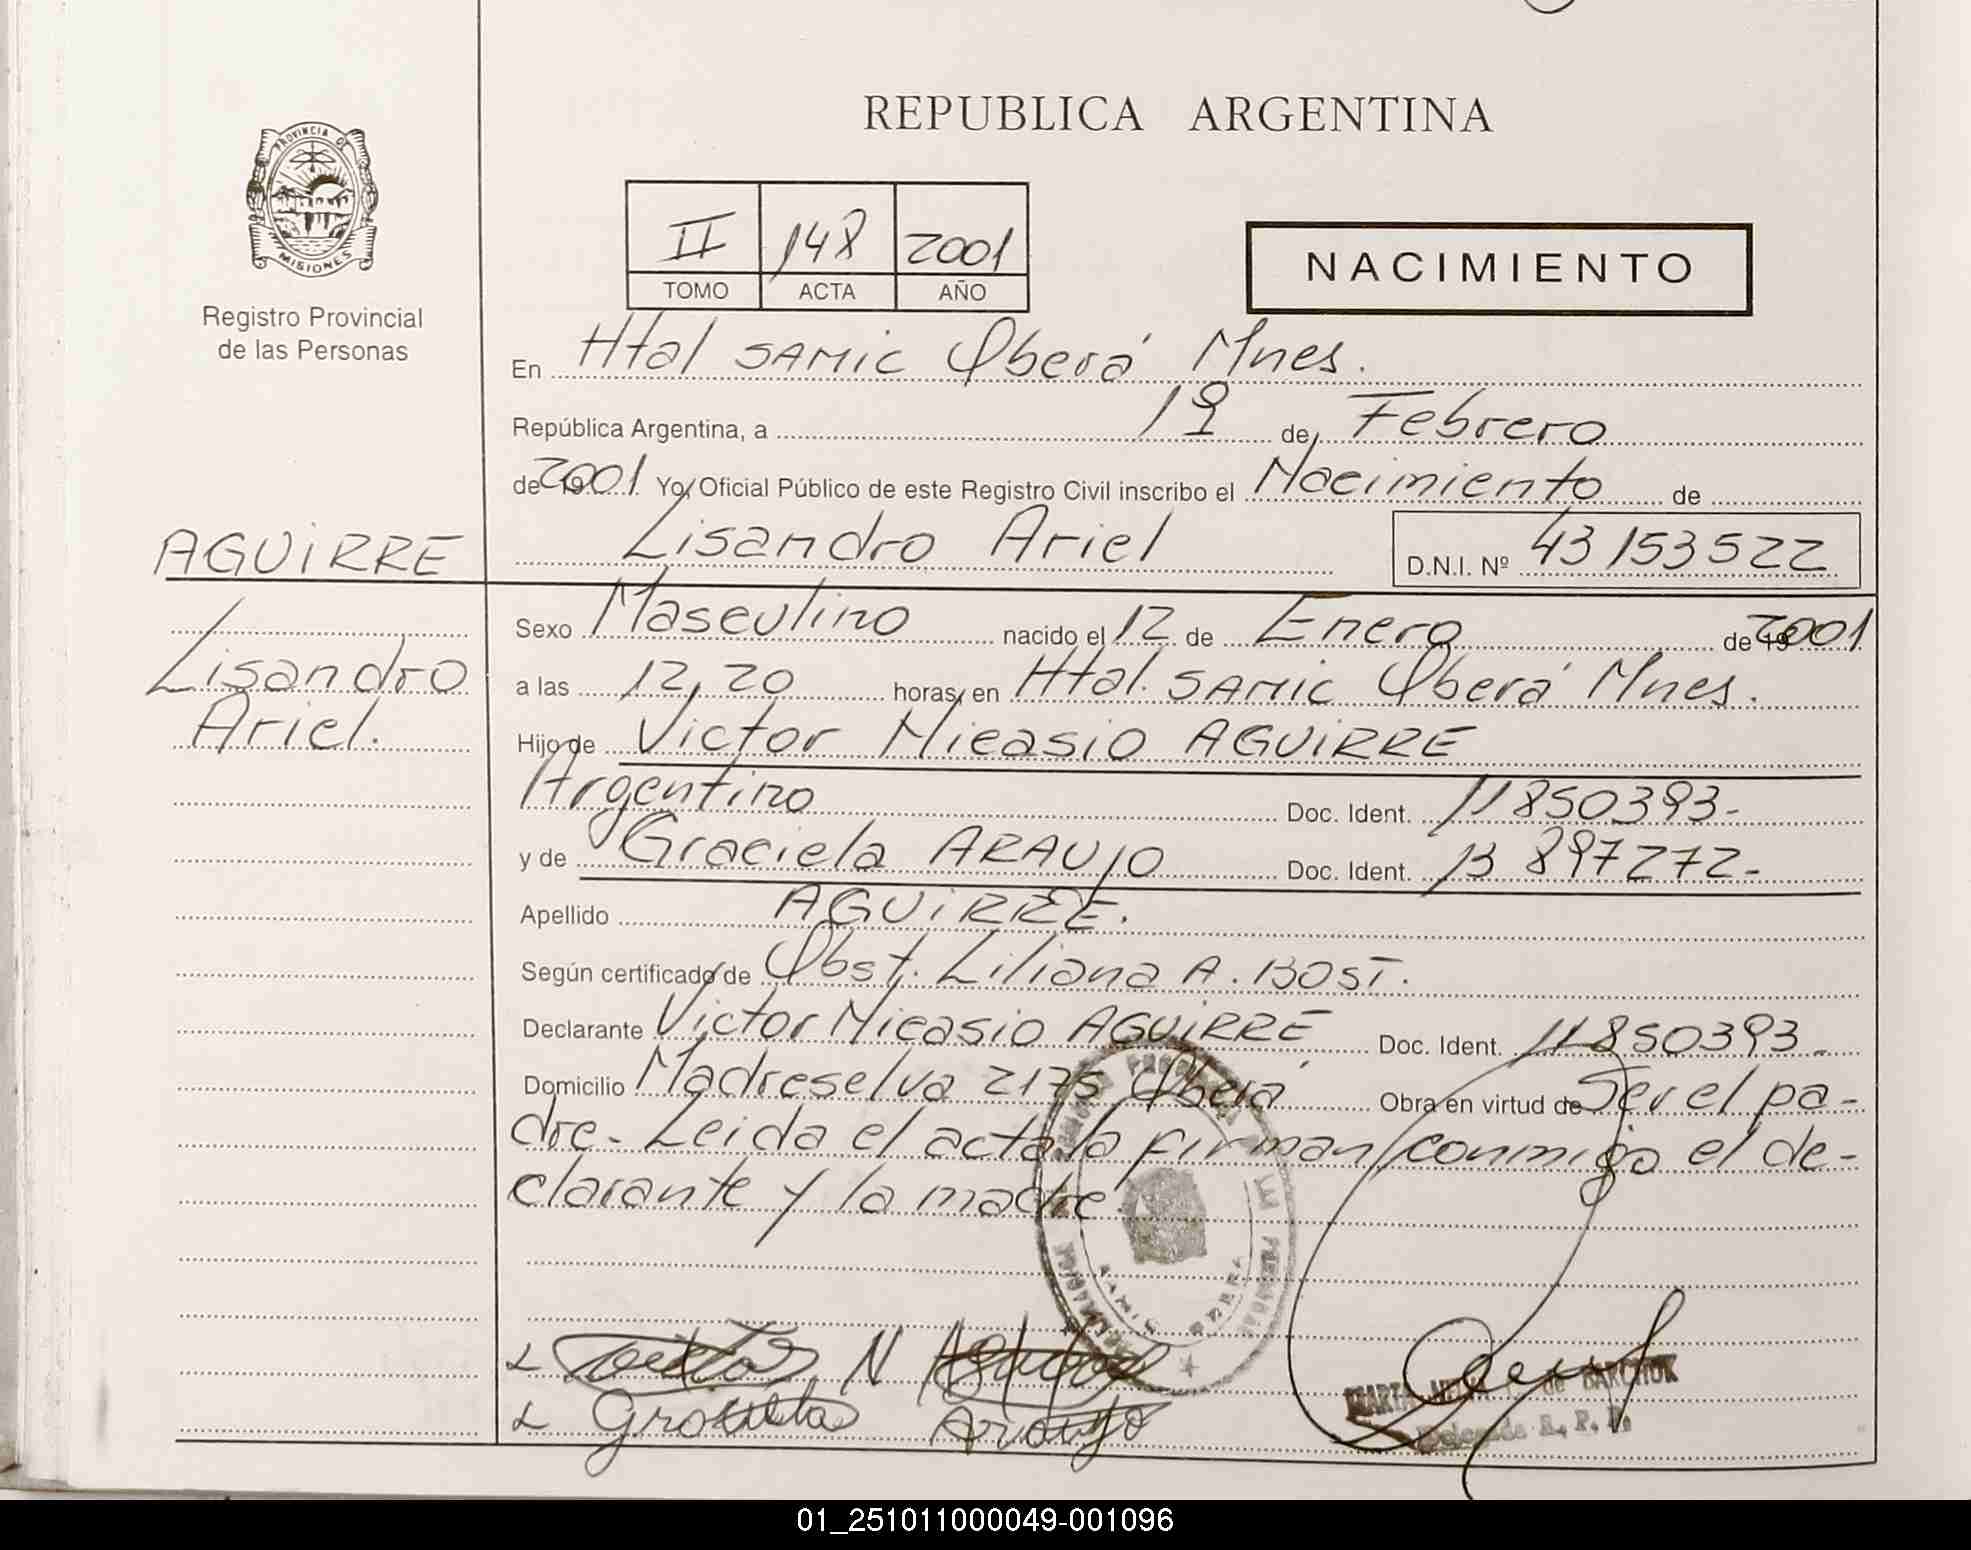 REPUBLICA ARGENTINA
PROVINCIA DE
MISIONES
Registro Provincial
de las Personas
II 148 2001
TOMO ACTA AÑO
NACIMIENTO
En Htal SAMIC Oberá Mnes.
República Argentina, a 19 de Febrero
de 2001 Yo, Oficial Público de este Registro Civil inscribo el Nacimiento de
Lisandro Ariel D.N.I. Nº 43153522
AGUIRRE
Lisandro
Ariel.
Sexo Masculino nacido el 12 de Enero de 2001
a las 12,20 horas, en Htal. SAMIC Oberá Mnes.
Hijo de Victor Nicasio AGUIRRE
Argentino Doc. Ident. 11850393-
y de Graciela ARAUJO Doc. Ident. 13897272-
Apellido AGUIRRE.
Según certificado de Obst. Liliana A. BOST.
Declarante Victor Nicasio AGUIRRE Doc. Ident. 11850393-
Domicilio Madreselva 2175 Oberá Obra en virtud de Ser el pa-
dre- Leida el acta la firman conmigo el de-
clarante y la madre.
N
Araujo
de BARCHUK
Delegada R. P. P.
01_251011000049-001096